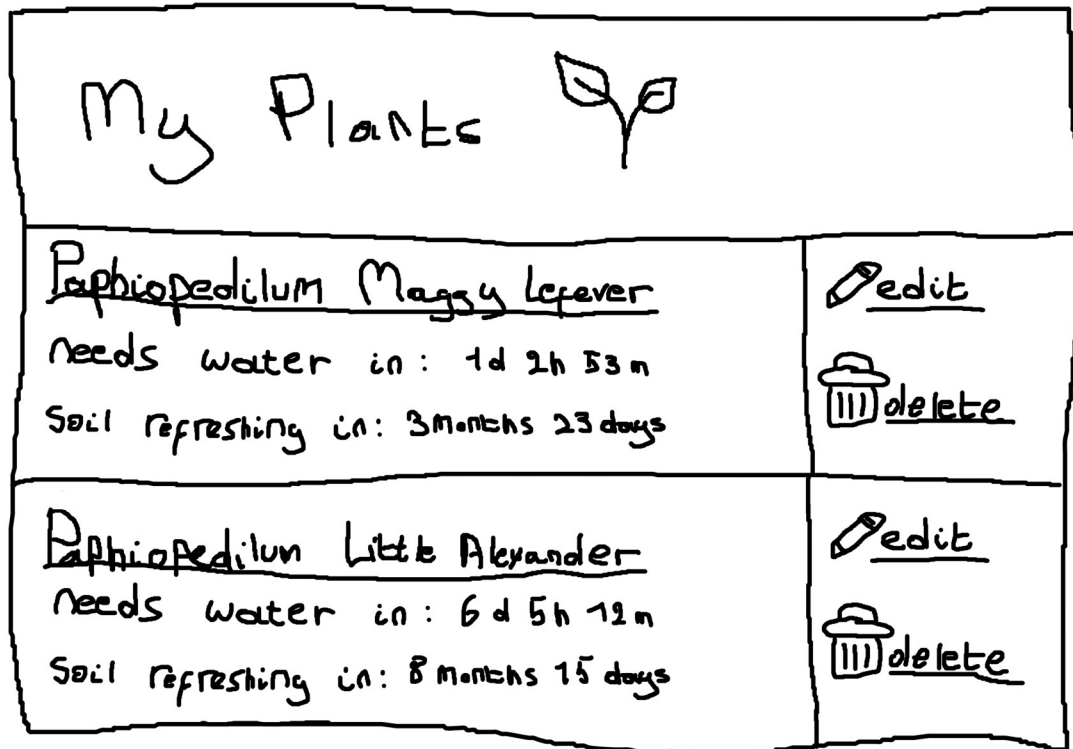 My Plants
Paphiopedilum Maggy Lefever
needs water in: 1d 2h 53m
Soil refreshing in: 3 Months 23 days
edit
delete
Paphiopedilum Little Alexander
needs water in: 6d 5h 12m
Soil refreshing in: 8 Months 15 days
edit
delete